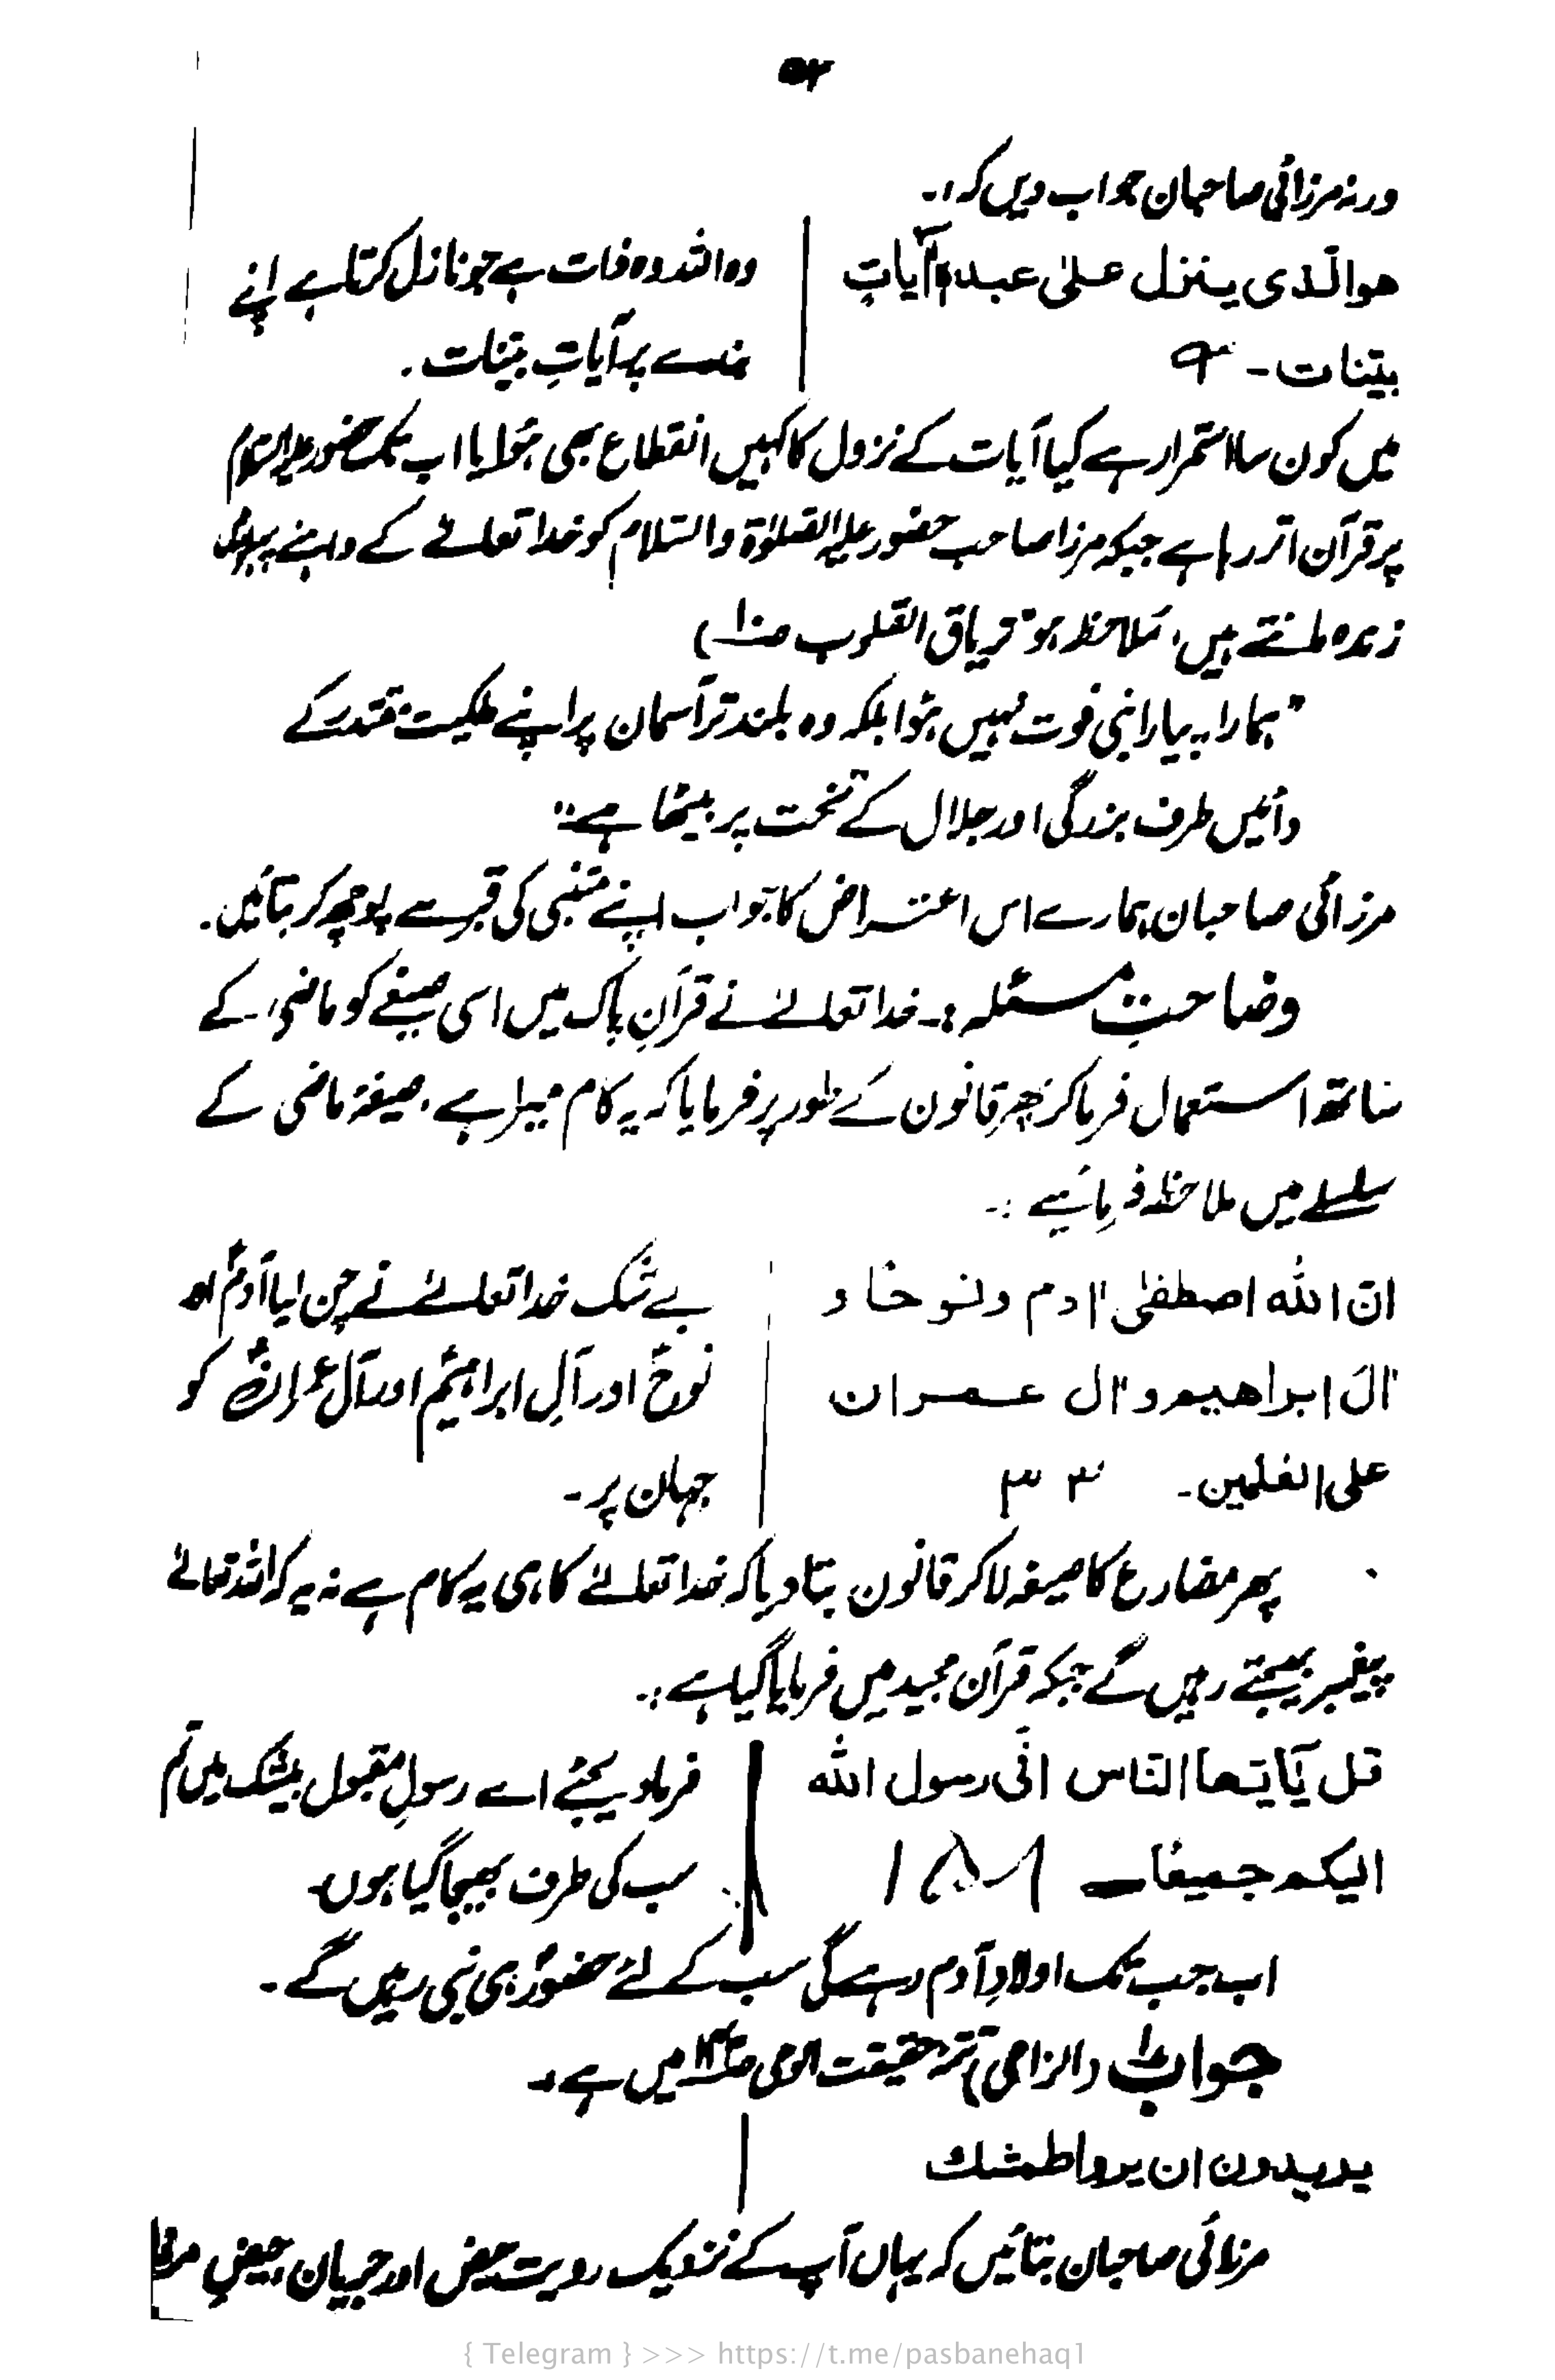 ۵۲
ورنہ مرزائی صاحبان جواب دیں کہ :۔
ھوالّذی ینزل علیٰ عبدہٖ آیاتٍ
بیّنات۔ ۹
وہ اللہ وہ ذات ہے جو نازل کرتا ہے اپنے
بندے پر آیاتِ بیّنات۔
میں کون سا استمرار ہے کیا آیات کے نزول کا کہیں انقطاع بھی ہؤا یا اب تک حضور علیہ السّلام
پر قرآن اتر رہا ہے جبکہ مرزا صاحب حضور علیہ الصّلوٰۃ والسّلام کو خدا تعالےٰ کے داہنے پہلو میں
زندہ مانتے ہیں، ملاحظہ ہو "تریاق القلوب
"ہمارا یہ پیارا نبی فوت نہیں ہؤا بلکہ وہ بلند تر آسمان پر اپنے ملیکِ مقتدر کے
دائیں طرف بزرگی اور جلال کے تخت پر بیٹھا ہے"
مرزائی صاحبان ہمارے اس اعتراض کا جواب اپنے متنبی کی قبر سے پوچھ کر بتائیں۔
وضاحتِ مسئلہ :۔ خدا تعالےٰ نے قرآنِ پاک میں اسی صیغے کو ماضی کے
ساتھ استعمال فرما کر پھر قانون کے طور پر فرمایا کہ یہ کام میرا ہے، صیغۂ ماضی کے
سلسلے میں ملاحظہ فرمایئے :۔
انّ اللہ اصطفیٰ اٰدم ونوحًا و
اٰل ابراھیم و اٰل عمران
علی العٰلمین۔ ۳ ۳۳
بے شک خدا تعالےٰ نے چن لیا آدمؑ اور
نوحؑ اور آلِ ابراہیمؑ اور آلِ عمرانؑ کو
جہان پر۔
پھر مضارع کا صیغہ لا کر قانون بتا دیا کہ خدا تعالےٰ کا ہی یہ کام ہے نہ یہ کہ اللہ تعالےٰ
پیغمبر بھیجتے رہیں گے جبکہ قرآن مجید میں فرمایا گیا ہے :۔
قل یٰٓایّھا النّاس انّی رسول اللہ
الیکم جمیعًا۔ ۱۵۸
فرما دیجئے اے رسولِ مقبول بیشک میں تم
سب کی طرف بھیجا گیا ہوں۔
اب جب تک اولادِ آدم رہے گی سب کے لئے حضورؐ ہی نبی رہیں گے۔
جواب (الزامی) تتمہ حقیقت الوحی میں ہے۔
یریدون ان یروا طمثک
مرزائی صاحبان بتائیں کہ یہاں آپ کے نزدیک رویت حیض اور جریان حیضِ مرزا
{ Telegram } >>> https://t.me/pasbanehaq1